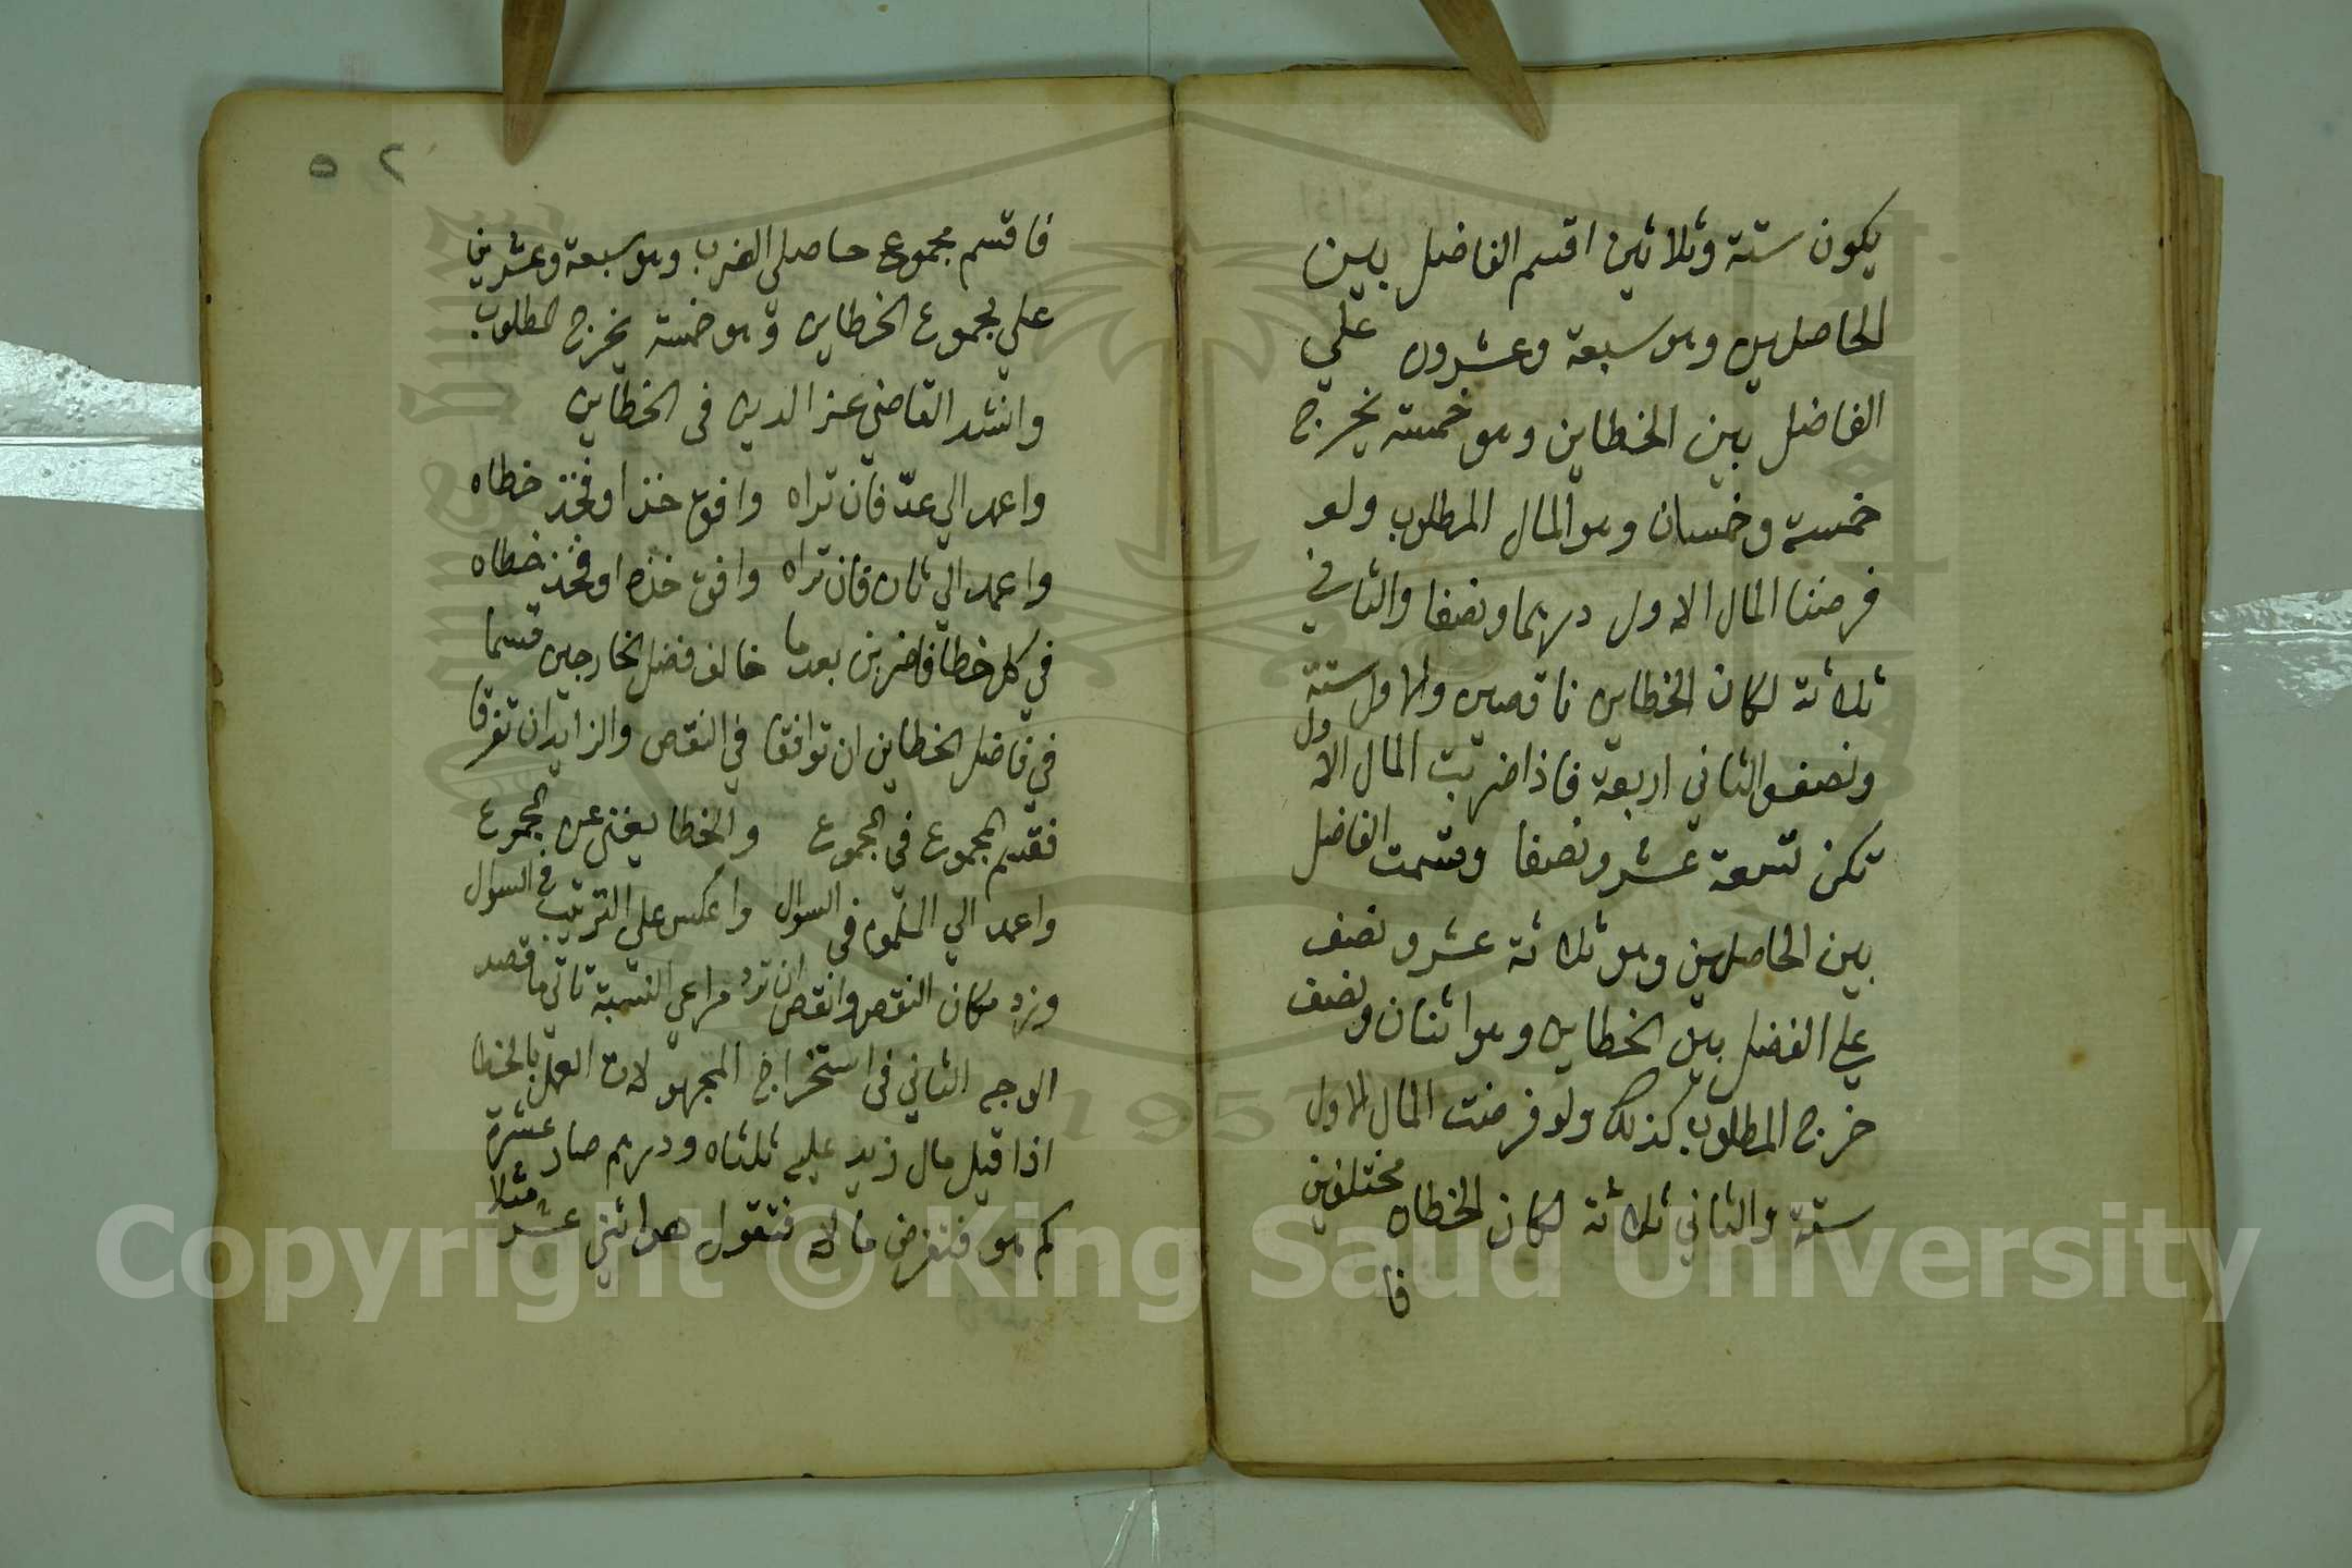 يكون ستة وثلاثين اقسم الفاضل بين
الحاصلين وهو سبعة وعشرون علي
الفاضل بين الخطاين وهو خمسة يخرج
خمسة وخمسان وهو المال المطلوب ولو
فرضنا المال الاول درهما ونصفا والثاني
ثلاثة لكان الخطاين ناقصين والاول ستة
ونصف والثاني اربعة فاذا ضربت المال الاول
تكن تسعة عشر ونصفا وقسمت الفاضل
بين الحاصلين وهو ثلاثة عشر ونصف
علي الفضل بين الخطاين وهو اثنان ونصف
خرج المطلوب كذلك ولو فرضت المال الاول
ستة والثاني ثلاثة لكان الخطاان مختلفين
فا
٥٢
فاقسم مجموع حاصلي الضرب وهو سبعة وعشرين
علي مجموع الخطاين وهو خمسة يخرج المطلوب
وانشد القاضي عز الدين في الخطاين
واعمد الي عدّ فان تراه وافق خذ او فخذ خطاه
واعمد الي ثان فان تراه وافق خذه او فخذ خطاه
في كل خطا فاضربن بعدما خالف فضل الخارجين قسما
في فاضل الخطاين ان توافقا في النقص والزايد ان تفرقا
فقسم المجموع في المجموع والخطا يغني عن المجموع
واعمد الي المعلوم في السوال واعكس علي الترتيب في السوال
وزد مكان النقص وانقص ان ترد مراعي النسبة تاتي ما قصد
الوجه الثاني في استخراج المجهولات العمل بالخطا
اذا قيل مال زيد عليه ثلثاه ودرهم صار عشرة
كم هو فتفرض مالا فتقول هو اثني عشر مثلا
Copyright © King Saud University
1957